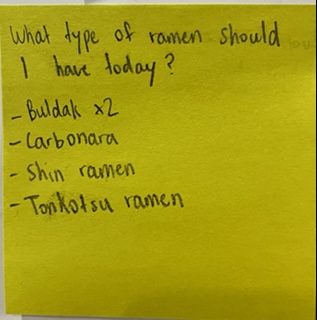 What type of ramen should
I have today?
- Buldak x2
- Carbonara
- Shin ramen
- Tonkotsu ramen